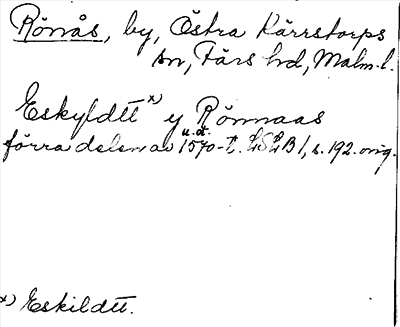 Rönås, by, Östra Kärrstorps
sn, Färs hd, Malm. l.
Eskyldtt x) y Rönnaas
u.d.
förra delen av 1570-t. LSLB 1, s. 192. orig.
x) Eskildtt.